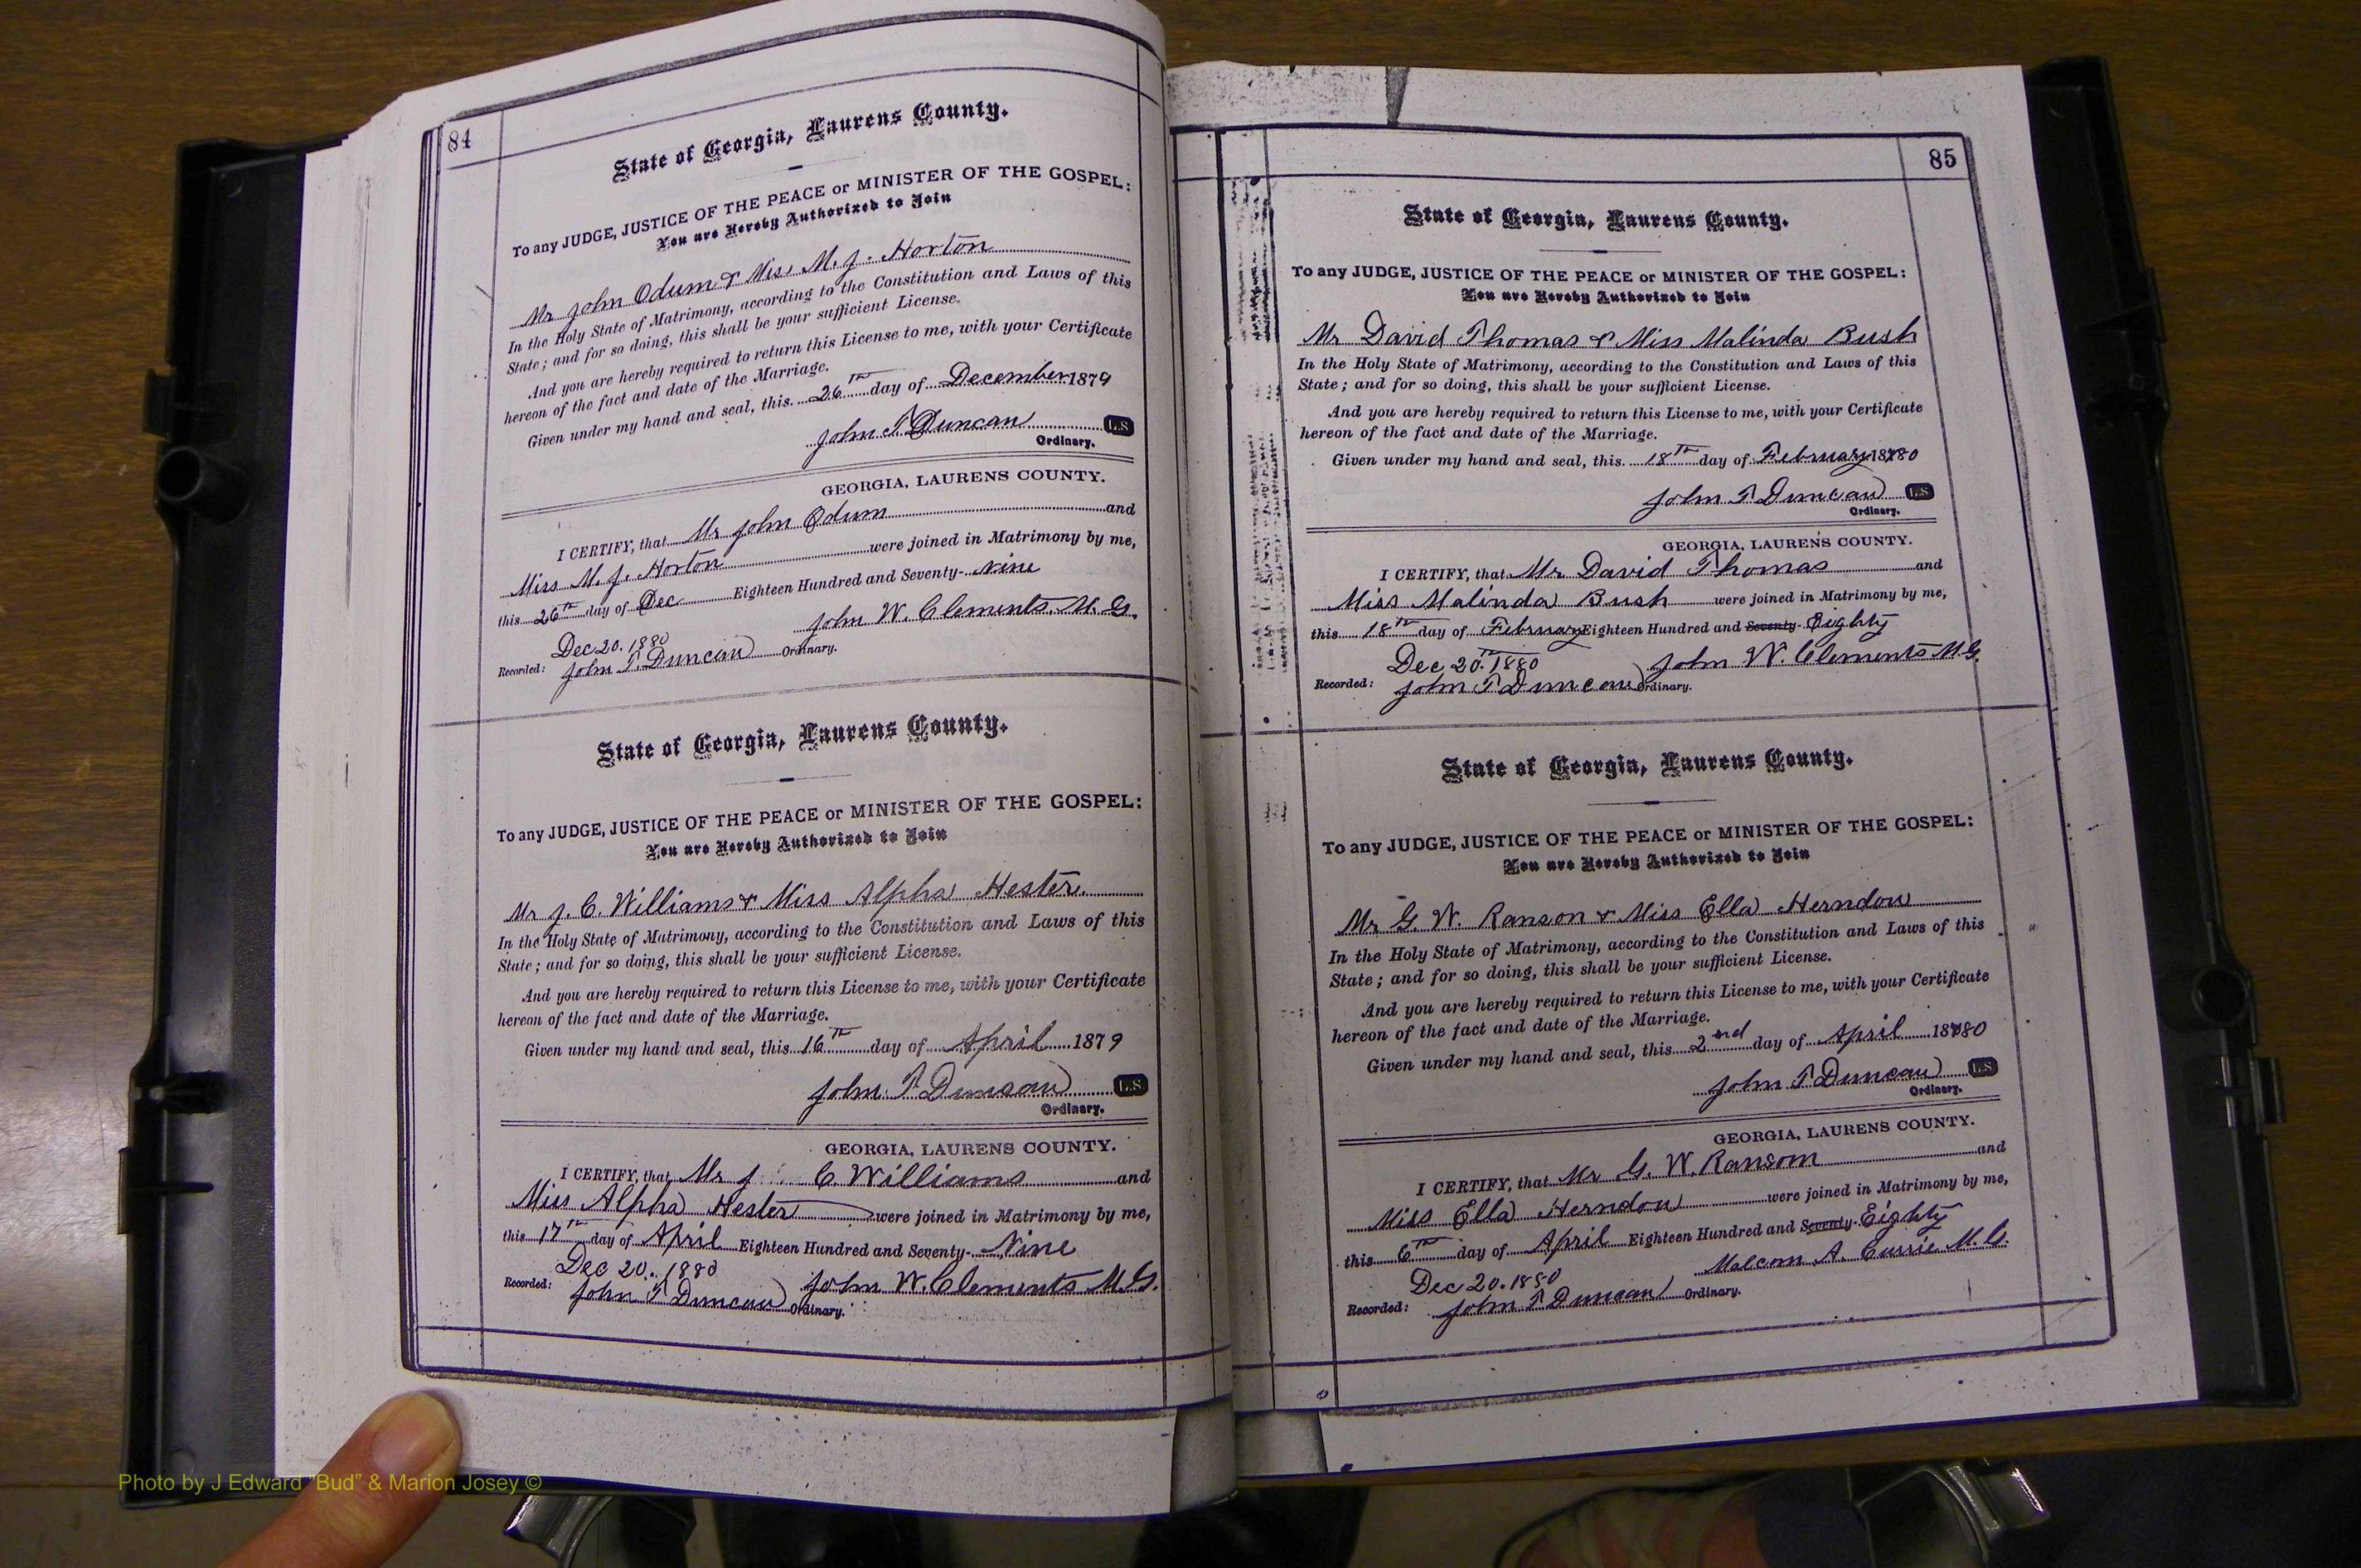 84
State of Georgia, Laurens County.
To any JUDGE, JUSTICE OF THE PEACE or MINISTER OF THE GOSPEL:
You are Hereby Authorized to Join
Mr John Odum & Miss M. J. Horton
In the Holy State of Matrimony, according to the Constitution and Laws of this
State; and for so doing, this shall be your sufficient License.
And you are hereby required to return this License to me, with your Certificate
hereon of the fact and date of the Marriage.
Given under my hand and seal, this 26th day of December 1879
John T Duncan L.S
Ordinary.
GEORGIA, LAURENS COUNTY.
I CERTIFY, that Mr John Odum and
Miss M. J. Horton were joined in Matrimony by me,
this 26th day of Dec Eighteen Hundred and Seventy-Nine
John W. Clements M. G.
Dec 20. 1880
Recorded: John T. Duncan Ordinary.
State of Georgia, Laurens County.
To any JUDGE, JUSTICE OF THE PEACE or MINISTER OF THE GOSPEL:
You are Hereby Authorized to Join
Mr J. C. Williams & Miss Alpha Hester
In the Holy State of Matrimony, according to the Constitution and Laws of this
State; and for so doing, this shall be your sufficient License.
And you are hereby required to return this License to me, with your Certificate
hereon of the fact and date of the Marriage.
Given under my hand and seal, this 16th day of April 1879
John T Duncan L.S.
Ordinary.
GEORGIA, LAURENS COUNTY.
I CERTIFY, that Mr J C Williams and
Miss Alpha Hester were joined in Matrimony by me,
this 17th day of April Eighteen Hundred and Seventy-Nine
Dec 20. 1880 John W. Clements M.G.
Recorded: John T Duncan Ordinary.
85
State of Georgia, Laurens County.
To any JUDGE, JUSTICE OF THE PEACE or MINISTER OF THE GOSPEL:
You are Hereby Authorized to Join
Mr David Thomas & Miss Malinda Bush
In the Holy State of Matrimony, according to the Constitution and Laws of this
State; and for so doing, this shall be your sufficient License.
And you are hereby required to return this License to me, with your Certificate
hereon of the fact and date of the Marriage.
Given under my hand and seal, this 18th day of February 18780
John T Duncan L.S
Ordinary.
GEORGIA, LAURENS COUNTY.
I CERTIFY, that Mr David Thomas and
Miss Malinda Bush were joined in Matrimony by me,
this 18th day of February Eighteen Hundred and Seventy-Eighty
Dec 20th 1880 John W. Clements M.G.
Recorded: John T Duncan Ordinary.
State of Georgia, Laurens County.
To any JUDGE, JUSTICE OF THE PEACE or MINISTER OF THE GOSPEL:
You are Hereby Authorized to Join
Mr G. W. Ranson & Miss Ella Herndon
In the Holy State of Matrimony, according to the Constitution and Laws of this
State; and for so doing, this shall be your sufficient License.
And you are hereby required to return this License to me, with your Certificate
hereon of the fact and date of the Marriage.
Given under my hand and seal, this 2nd day of April 18780
John T Duncan L.S
Ordinary.
GEORGIA, LAURENS COUNTY.
I CERTIFY, that Mr G. W. Ransom and
Miss Ella Herndon were joined in Matrimony by me,
this 6th day of April Eighteen Hundred and Seventy-Eighty
Malcom A. Currie M. G.
Dec 20. 1880
Recorded: John T Duncan Ordinary.
Photo by J Edward "Bud" & Marion Josey ©